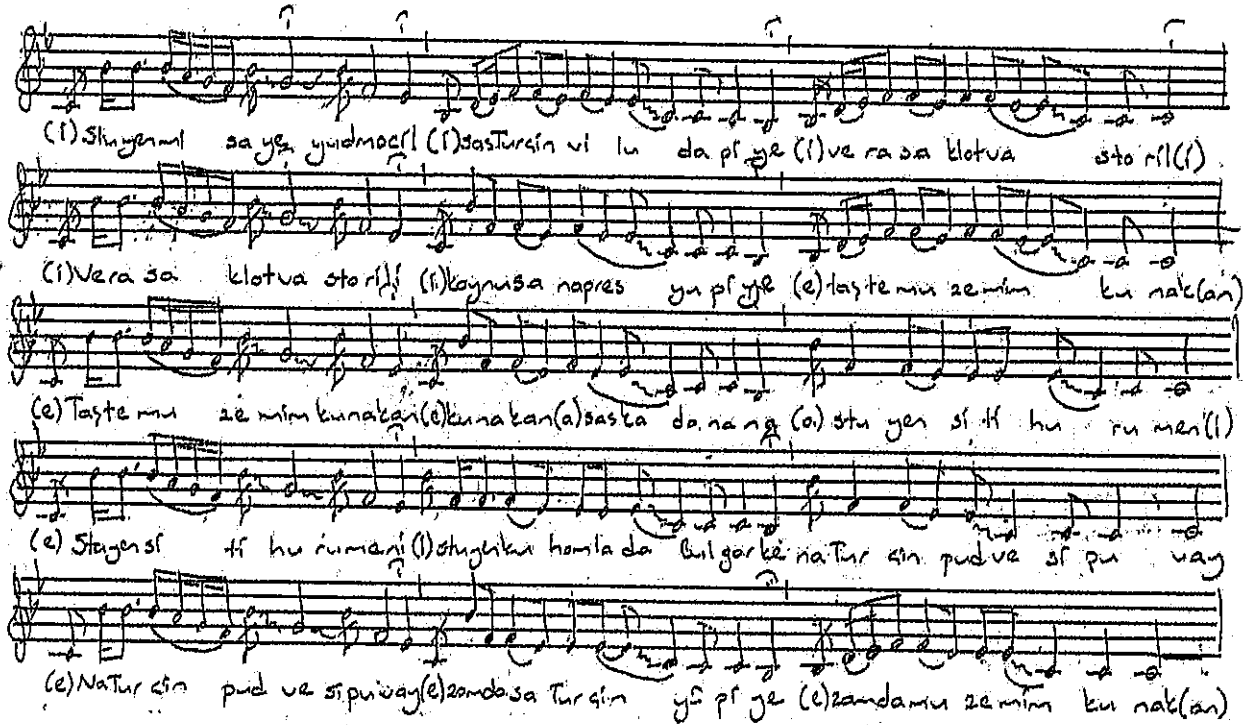 (i)Stuyenmi sa ye yudmocil (i)sasTurcin vi lu da pi ye (i)ve ra sa klotva sto ril(i)
(i)Vera sa klotva storili (i)koynusa napres yu pi yye (e)taşte mu zemim ku nak(an)
(e)Taşte mu ze mim kunakan(e)kunakan(a)saska da na ng (a)stu yen si ti hu ru men(i)
(e)Stuyensi ti hu rumeni (i)stuyenku homla da Bulgarkë naTur cin pudve si pu vay
(e)NaTurcin pud ve sipuvay(e)zamdasa Turcin yü pi ye (e)zamdamu zemim ku nak(an)